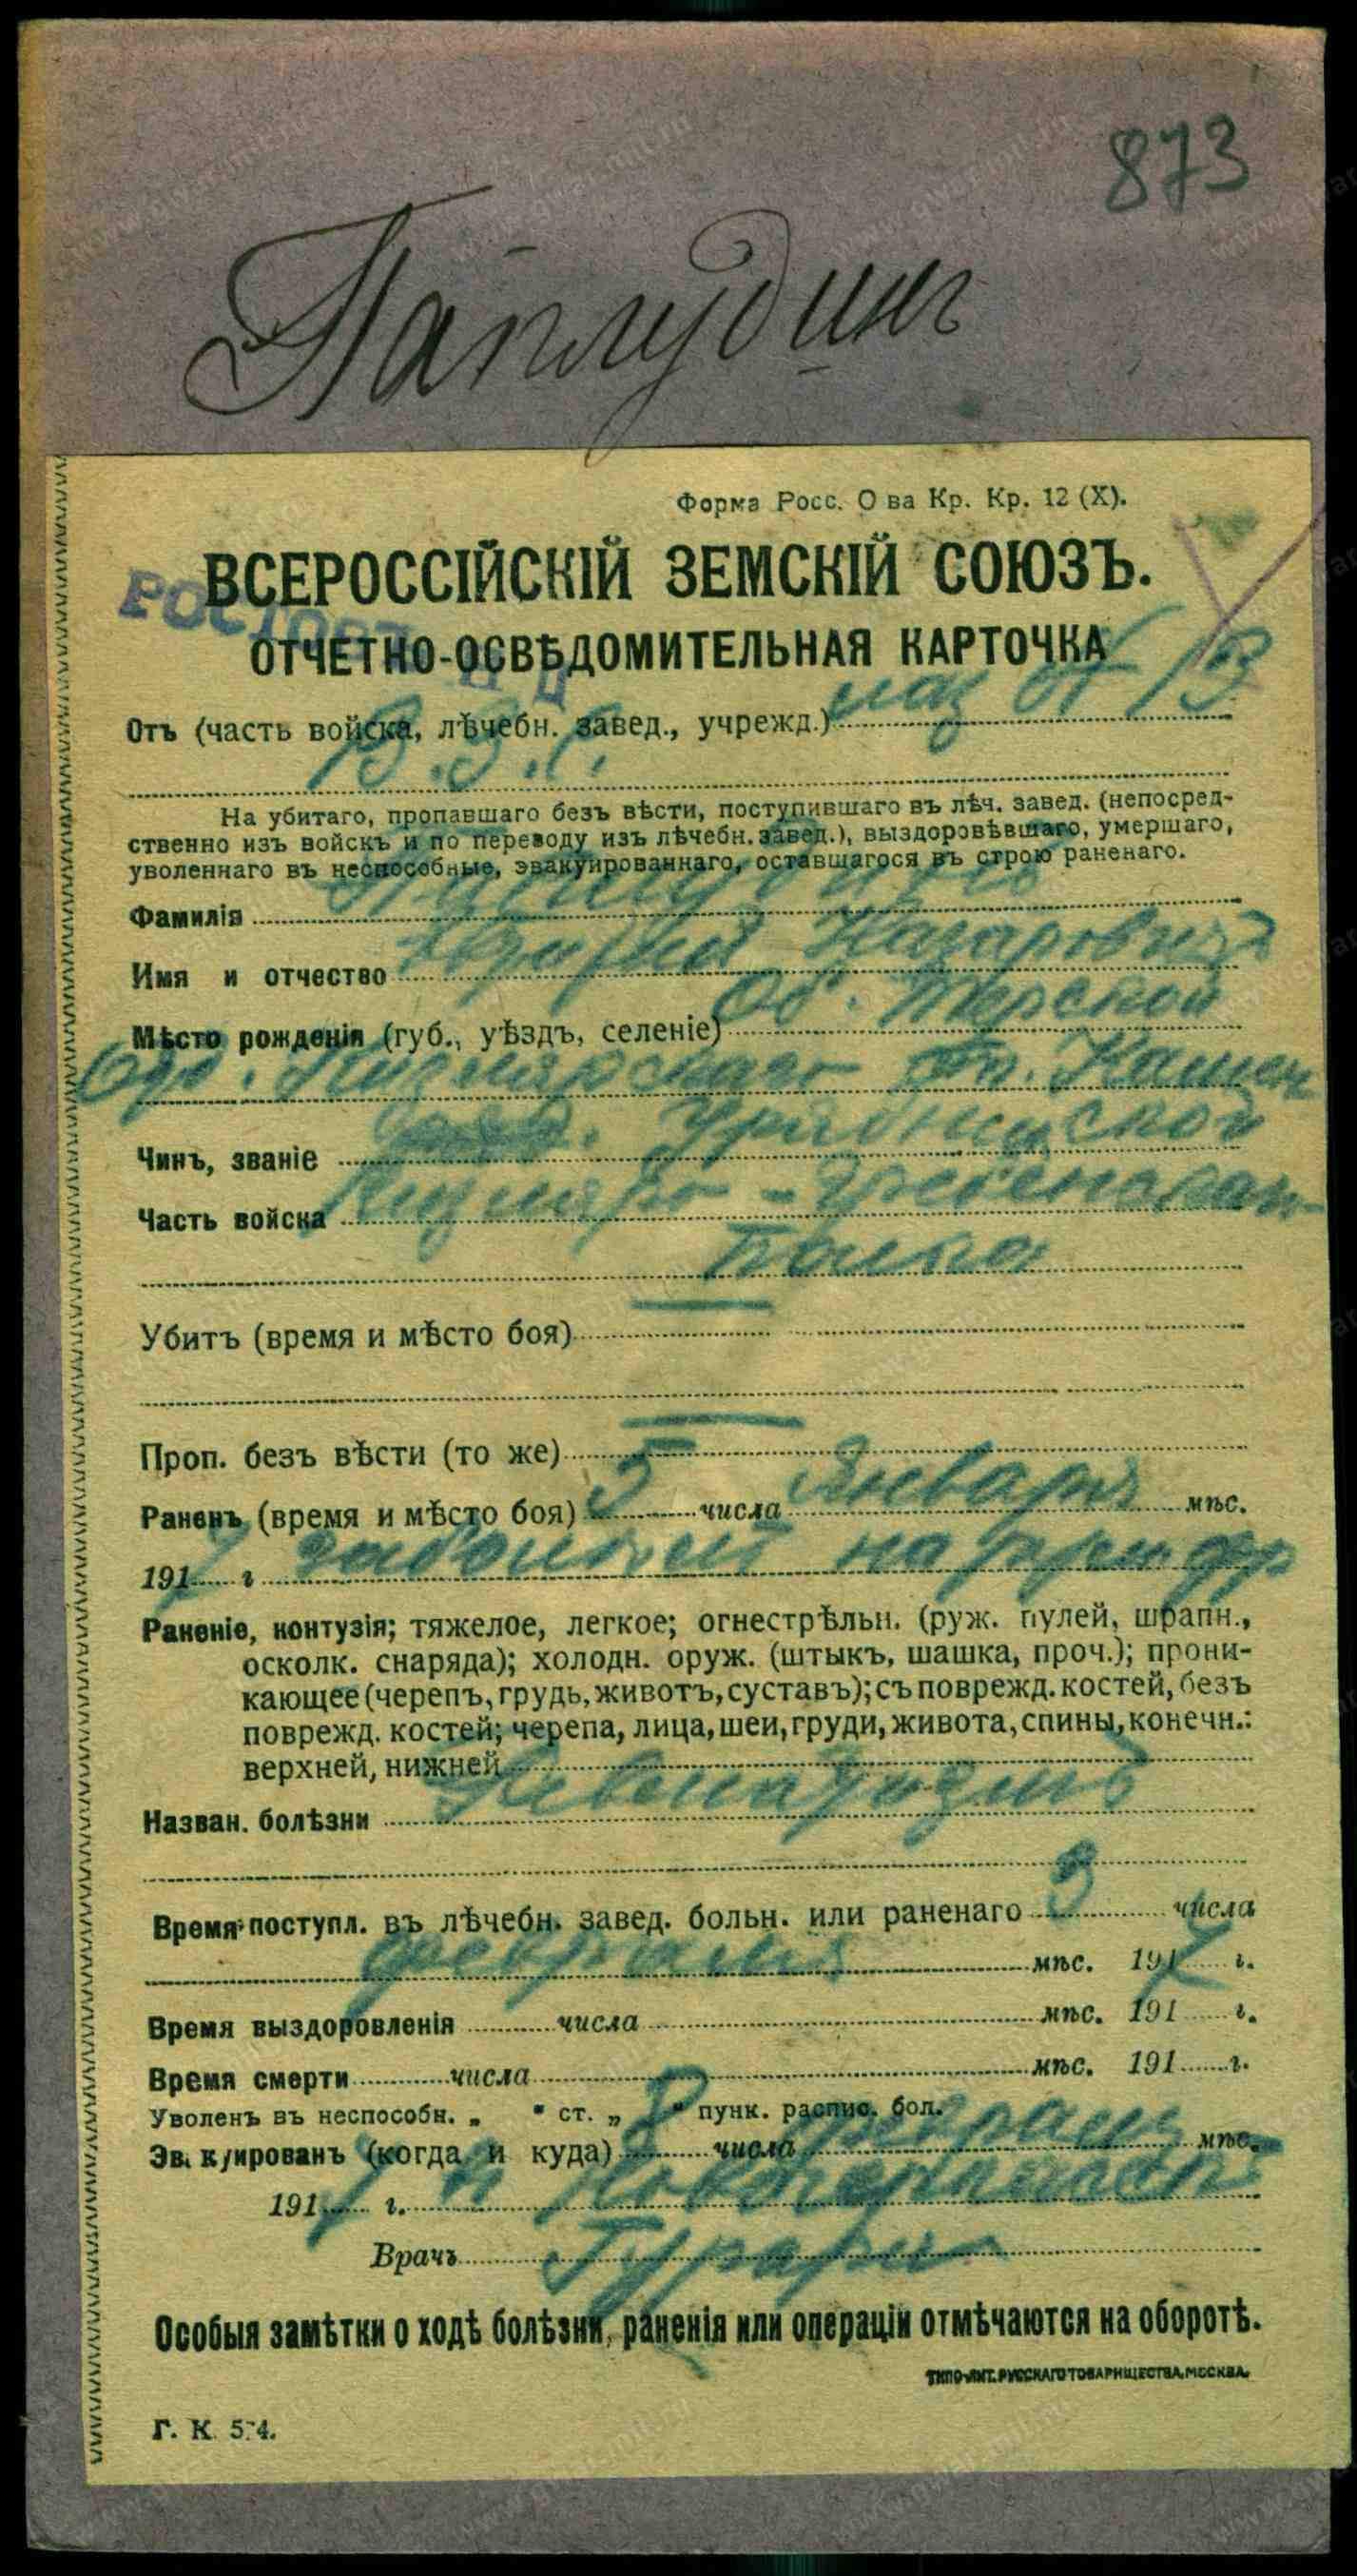 873
Паплудинъ
Форма Росс. О ва Кр. Кр. 12 (X).
ВСЕРОССІЙСКІЙ ЗЕМСКІЙ СОЮЗЪ.
РОСТОВЪ
ОТЧЕТНО-ОСВѢДОМИТЕЛЬНАЯ КАРТОЧКА
Отъ (часть войска, лѣчебн. завед., учрежд.) лаз
В.З.С.
На убитаго, пропавшаго безъ вѣсти, поступившаго въ лѣч. завед. (непосред-
ственно изъ войскъ и по переводу изъ лѣчебн. завед.), выздоровѣвшаго, умершаго,
уволеннаго въ неспособные, эвакуированнаго, оставшагося въ строю раненаго.
Фамилія Паплудинъ
Имя и отчество Назаровичъ
Мѣсто рожденія (губ., уѣздъ, селеніе) Об. Терской
Кизлярскаго
Чинъ, званіе
Часть войска Кизляро-Гребенскаго
полка
Убитъ (время и мѣсто боя)
Проп. безъ вѣсти (то же)
Раненъ (время и мѣсто боя) 5 числа Января мѣс.
1917 г заболѣлъ на
Раненіе, контузія; тяжелое, легкое; огнестрѣльн. (руж. пулей, шрапн.,
осколк. снаряда); холодн. оруж. (штыкъ, шашка, проч.); прони-
кающее (черепъ, грудь, животъ, суставъ); съ поврежд. костей, безъ
поврежд. костей; черепа, лица, шеи, груди, живота, спины, конечн.:
верхней, нижней
Назван. болѣзни
Время поступл. въ лѣчебн. завед. больн. или раненаго 3 числа
февраля мѣс. 1917 г.
Время выздоровленія числа мѣс. 191 г.
Время смерти числа мѣс. 191 г.
Уволенъ въ неспособн. „ " ст. „ " пунк. распис. бол.
Эвакуированъ (когда и куда) 8 числа февраля мѣс.
1917 г. в Новочеркасск
Врачъ Гурари
Особыя замѣтки о ходѣ болѣзни, раненія или операціи отмѣчаются на оборотѣ.
ТИПО-ЛИТ. РУССКАГО ТОВАРИЩЕСТВА, МОСКВА.
Г. К. 574.